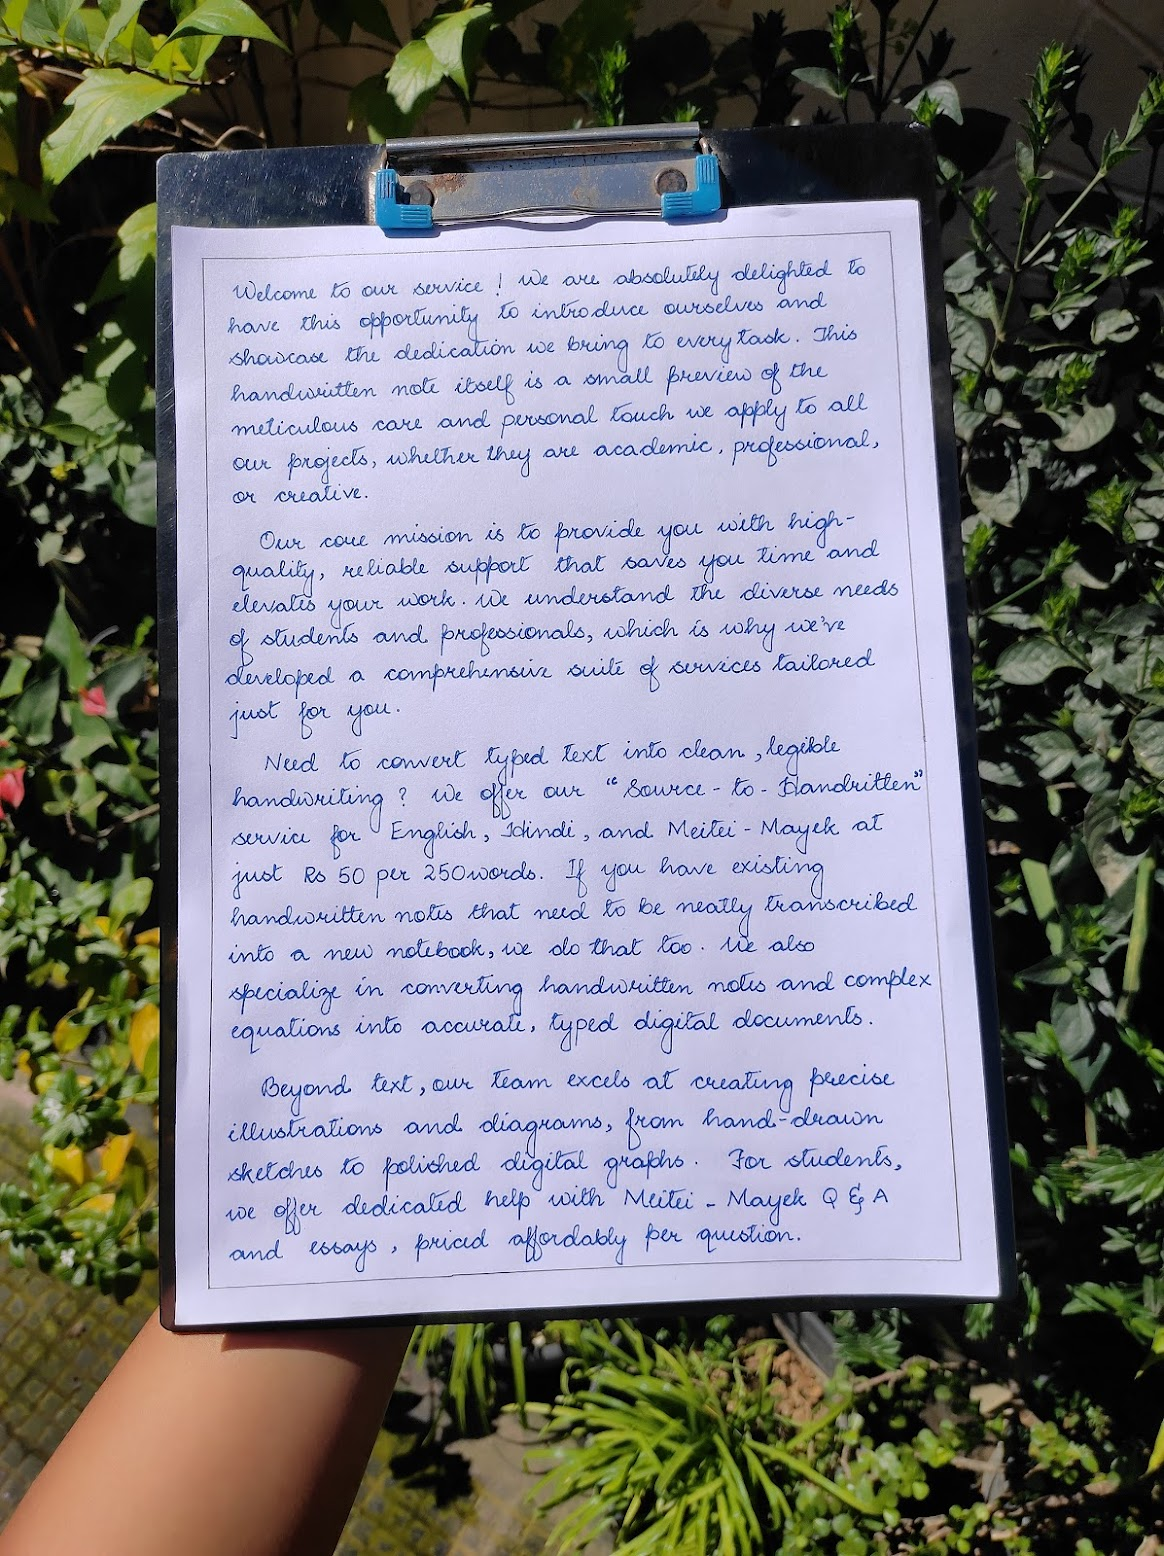 Welcome to our service! We are absolutely delighted to
have this opportunity to introduce ourselves and
showcase the dedication we bring to every task. This
handwritten note itself is a small preview of the
meticulous care and personal touch we apply to all
our projects, whether they are academic, professional,
or creative.
Our core mission is to provide you with high-
quality, reliable support that saves you time and
elevates your work. We understand the diverse needs
of students and professionals, which is why we've
developed a comprehensive suite of services tailored
just for you.
Need to convert typed text into clean, legible
handwriting? We offer our "Source-to-Handritten"
service for English, Hindi, and Meitei-Mayek at
just Rs 50 per 250 words. If you have existing
handwritten notes that need to be neatly transcribed
into a new notebook, we do that too. We also
specialize in converting handwritten notes and complex
equations into accurate, typed digital documents.
Beyond text, our team excels at creating precise
illustrations and diagrams, from hand-drawn
sketches to polished digital graphs. For students,
we offer dedicated help with Meitei-Mayek Q & A
and essays, priced affordably per question.